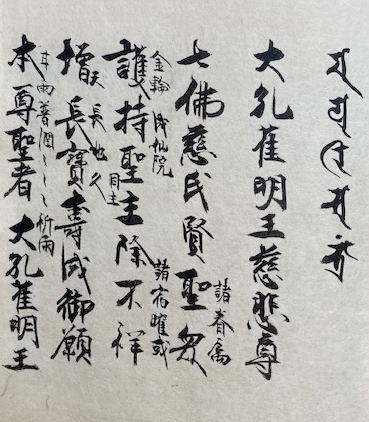 大孔雀明王慈悲尊
諸眷属
七佛慈氏賢聖衆
金輪 或仙院
諸宿曜或
護持聖主除不祥
天長地久
増長寶壽成御願
甘雨普潤 祈雨
本尊聖者大孔雀明王